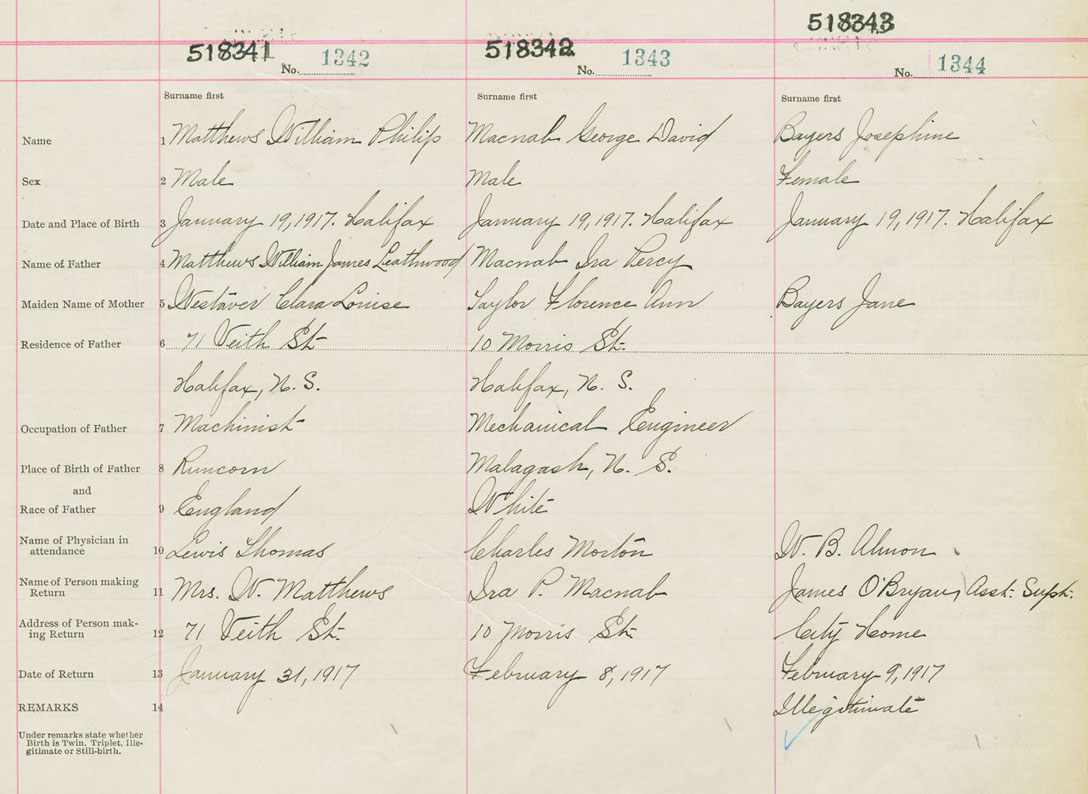 518341 No. 1342
518342 No. 1343
518343 No. 1344
Surname first Surname first Surname first
Name 1 Matthews William Philip Macnab George David Bayers Josephine
Sex 2 Male Male Female
Date and Place of Birth 3 January 19, 1917. Halifax January 19, 1917. Halifax January 19, 1917. Halifax
Name of Father 4 Matthews William James Leathwood Macnab Ira Percy
Maiden Name of Mother 5 Westaver Clara Louise Taylor Florence Ann Bayers Jane
Residence of Father 6 71 Veith St. 10 Morris St.
Halifax, N. S. Halifax, N. S.
Occupation of Father 7 Machinist Mechanical Engineer
Place of Birth of Father 8 Runcorn Malagash, N. S.
and
Race of Father 9 England White
Name of Physician in
attendance 10 Lewis Thomas Charles Morton W. B. Almon
Name of Person making
Return 11 Mrs. W. Matthews Ira P. Macnab James O'Bryan, Asst. Supt.
Address of Person mak-
ing Return 12 71 Veith St. 10 Morris St. City Home
Date of Return 13 January 31, 1917 February 8, 1917 February 9, 1917
REMARKS 14 Illegitimate
Under remarks state whether
Birth is Twin, Triplet, Ille-
gitimate or Still-birth.